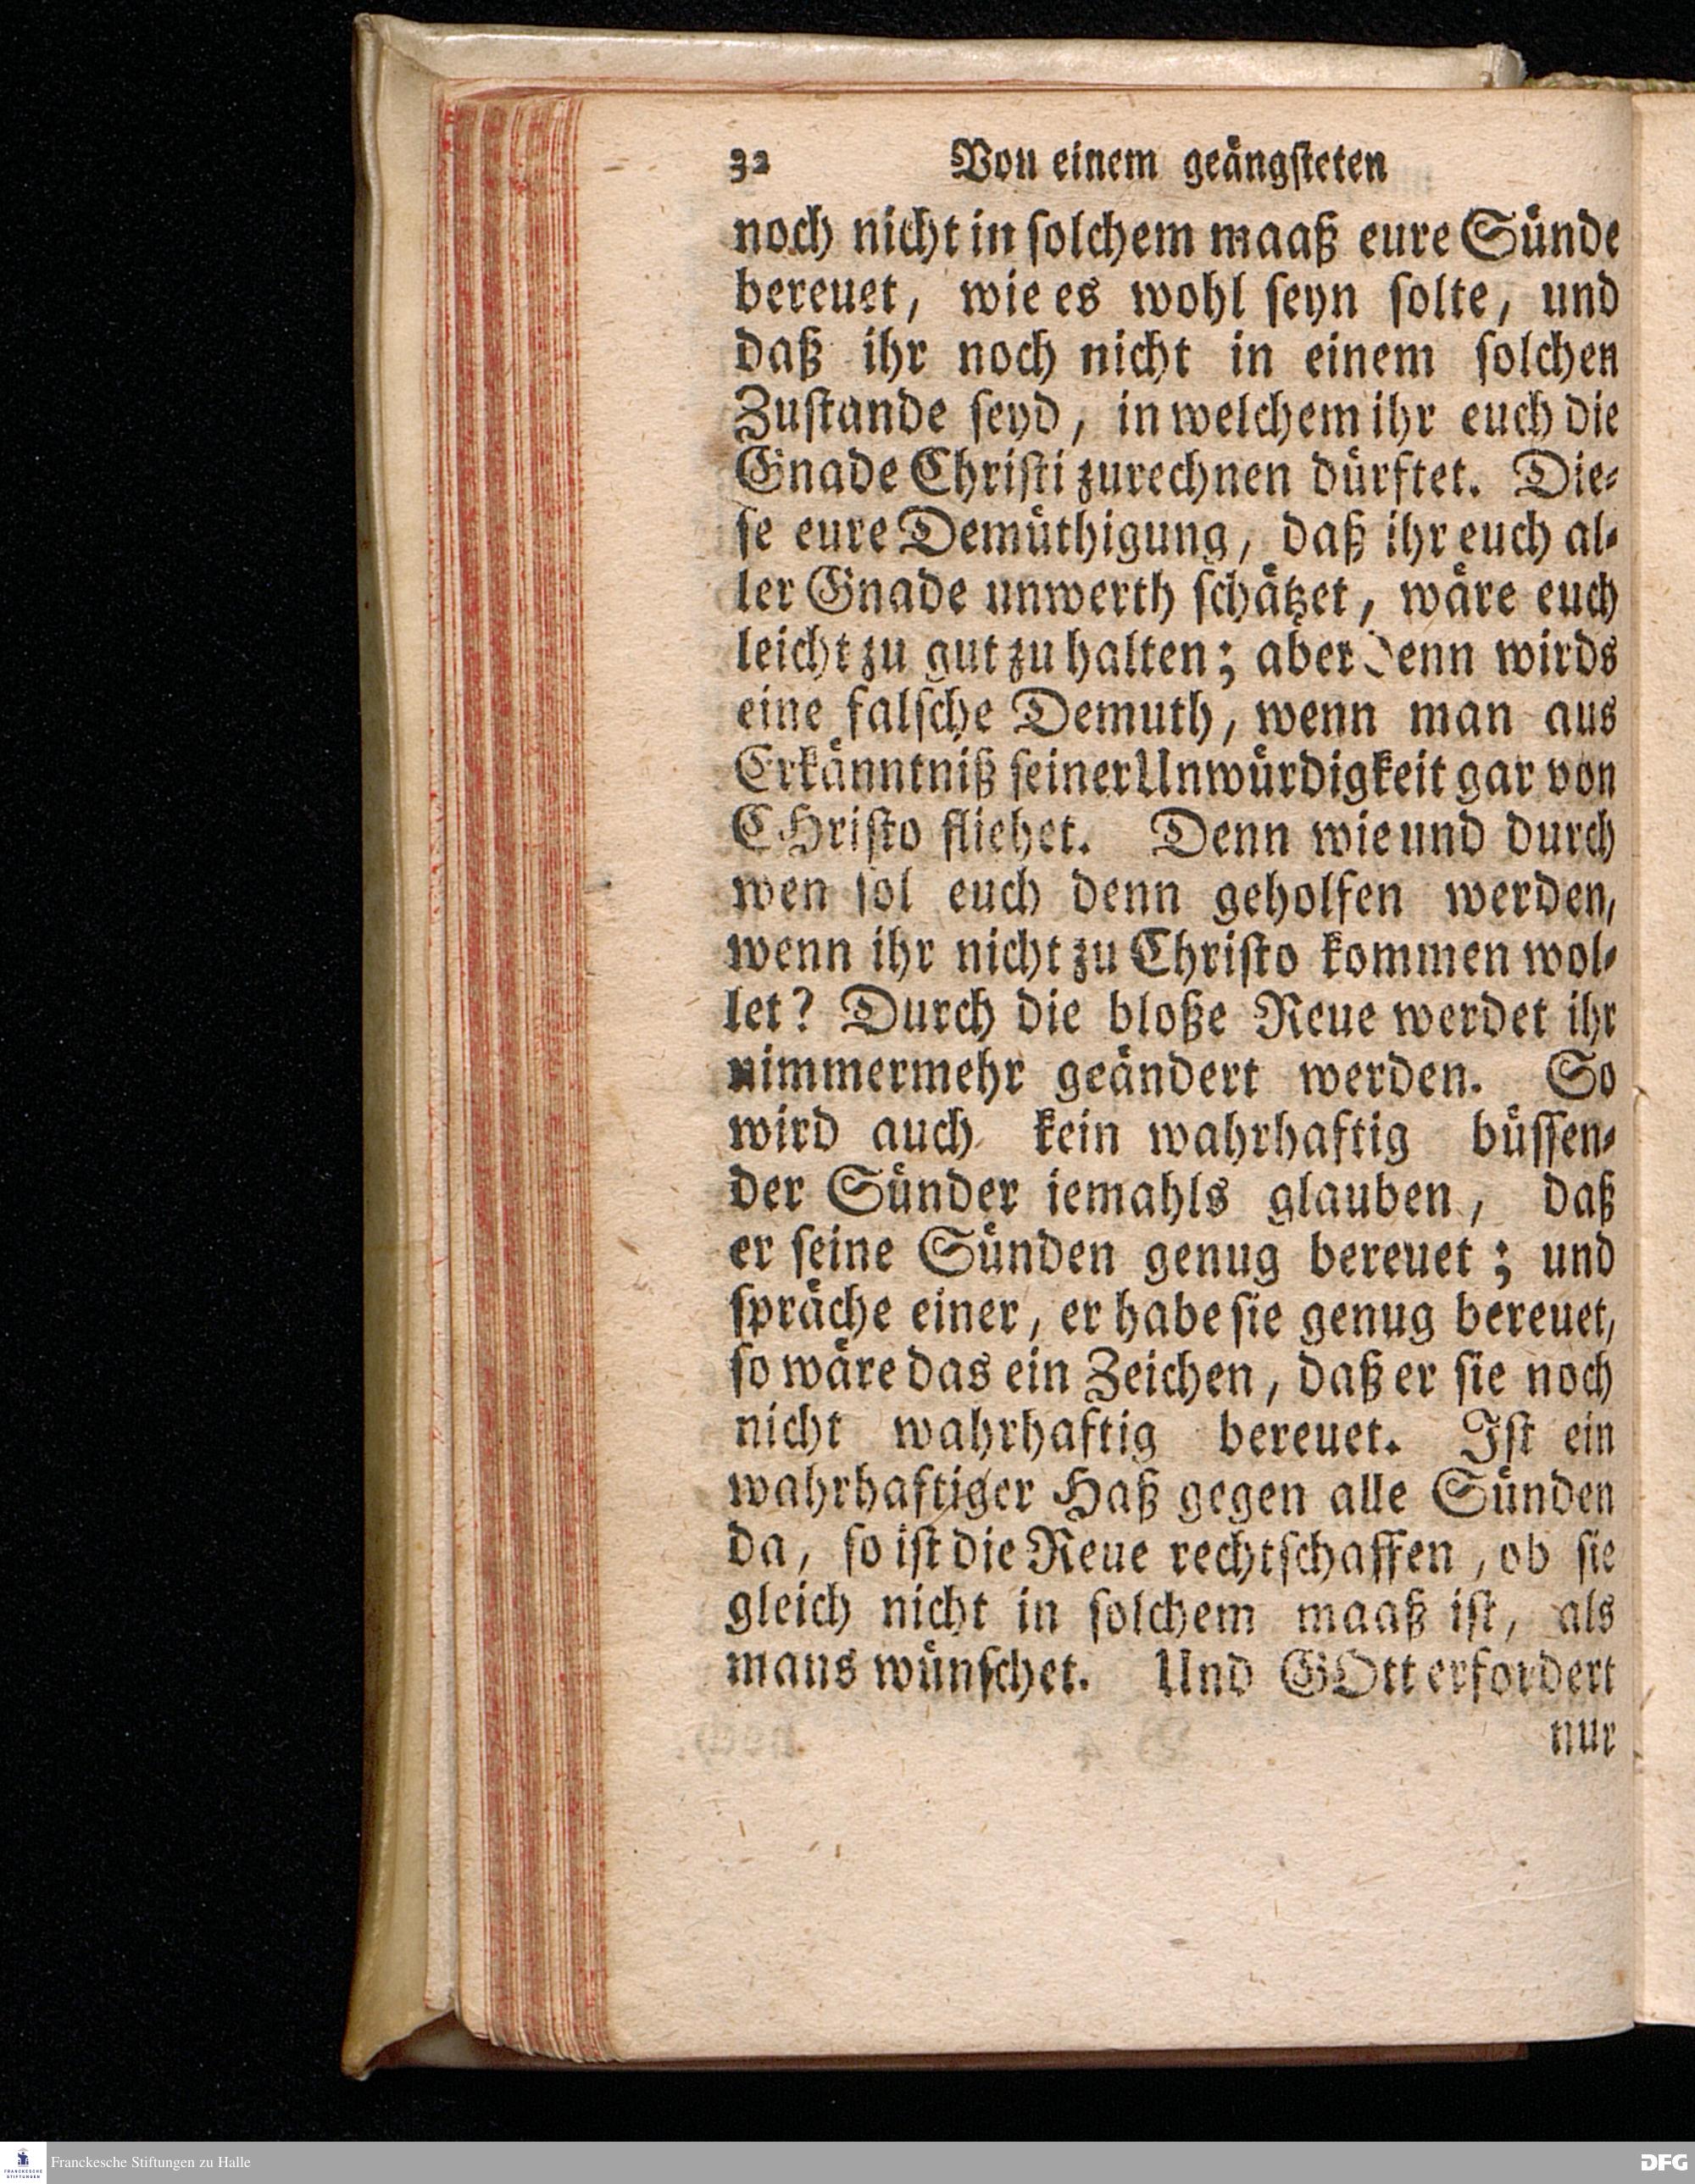 32 Von einem geängſteten
noch nicht in ſolchem maaß eure Sünde
bereuet, wie es wohl ſeyn ſolte, und
daß ihr noch nicht in einem ſolchen
Zuſtande ſeyd, in welchem ihr euch die
Gnade Chriſti zurechnen dürftet. Die-
ſe eure Demüthigung, daß ihr euch al-
ler Gnade unwerth ſchätzet, wäre euch
leicht zu gut zu halten; aber denn wirds
eine falſche Demuth, wenn man aus
Erkänntniß ſeiner Unwürdigkeit gar von
CHriſto fliehet. Denn wie und durch
wen ſol euch denn geholfen werden,
wenn ihr nicht zu Chriſto kommen wol-
let? Durch die bloße Reue werdet ihr
nimmermehr geändert werden. So
wird auch kein wahrhaftig büſſen-
der Sünder iemahls glauben, daß
er ſeine Sünden genug bereuet; und
ſpräche einer, er habe ſie genug bereuet,
ſo wäre das ein Zeichen, daß er ſie noch
nicht wahrhaftig bereuet. Iſt ein
wahrhaftiger Haß gegen alle Sünden
da, ſo iſt die Reue rechtſchaffen, ob ſie
gleich nicht in ſolchem maaß iſt, als
mans wünſchet. Und GOtt erfordert
nur
Franckesche Stiftungen zu Halle
DFG